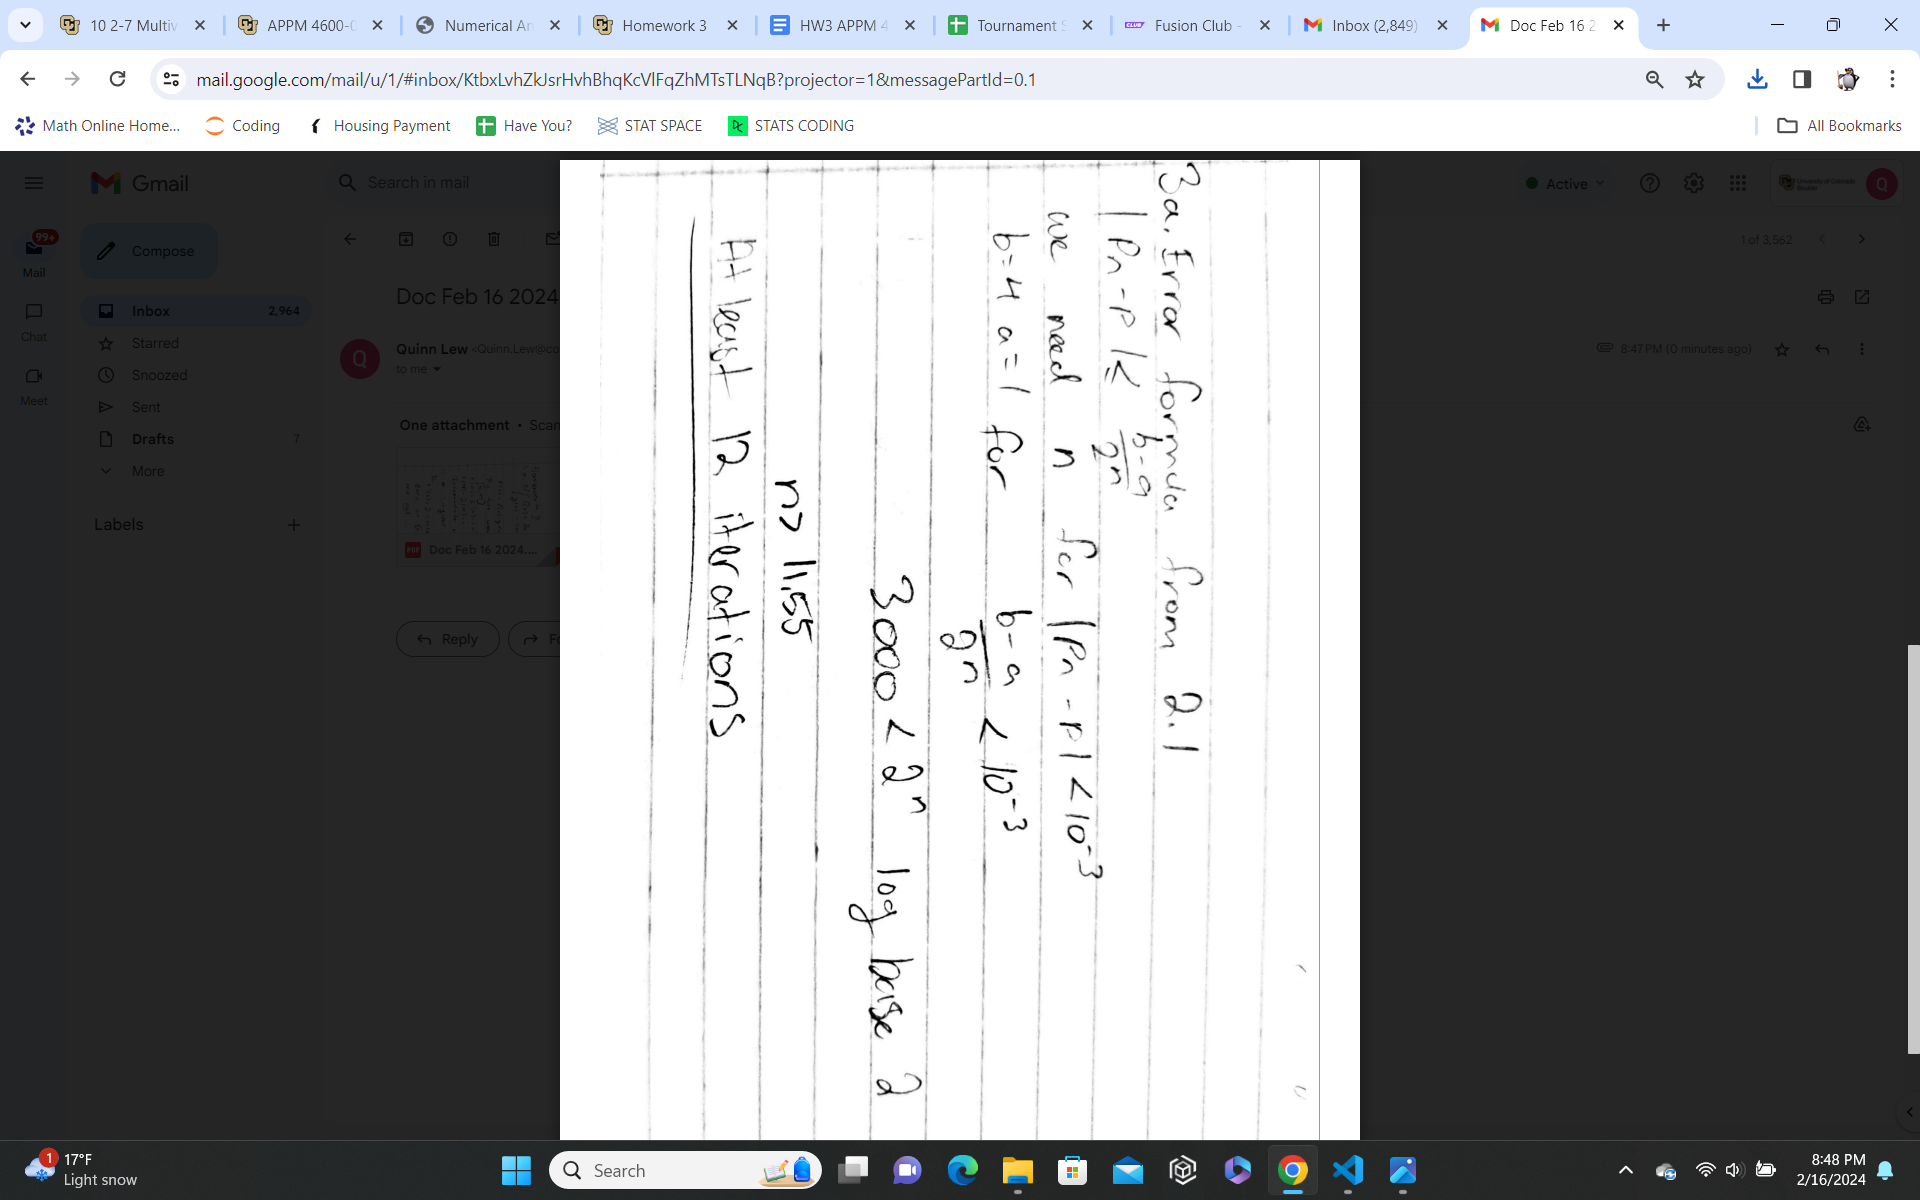 10 2-7 Multiv
APPM 4600-0
Numerical An
Homework 3
HW3 APPM 4
Tournament S
Fusion Club -
Inbox (2,849)
Doc Feb 16 2
mail.google.com/mail/u/1/#inbox/KtbxLvhZkJsrHvhBhqKcVlFqZhMTsTLNqB?projector=1&messagePartId=0.1
Math Online Home...
Coding
Housing Payment
Have You?
STAT SPACE
STATS CODING
All Bookmarks
Gmail
Search in mail
Active
Q
99+
Mail
Chat
Meet
Compose
1 of 3,562
Doc Feb 16 2024
Inbox 2,964
Starred
Snoozed
Sent
Drafts 7
More
Labels
Q
Quinn Lew <Quinn.Lew@co
to me
8:47 PM (0 minutes ago)
One attachment • Scan
PDF Doc Feb 16 2024....
Reply
Fo
3a. Error formula from 2.1
|Pn-P|≤ b-a/2^n
we need n for |Pn-P|<10^-3
b=4 a=1 for b-a/2^n < 10^-3
3000 < 2^n log base 2
n> 11.55
At least 12 iterations
1
17°F
Light snow
Search
8:48 PM
2/16/2024